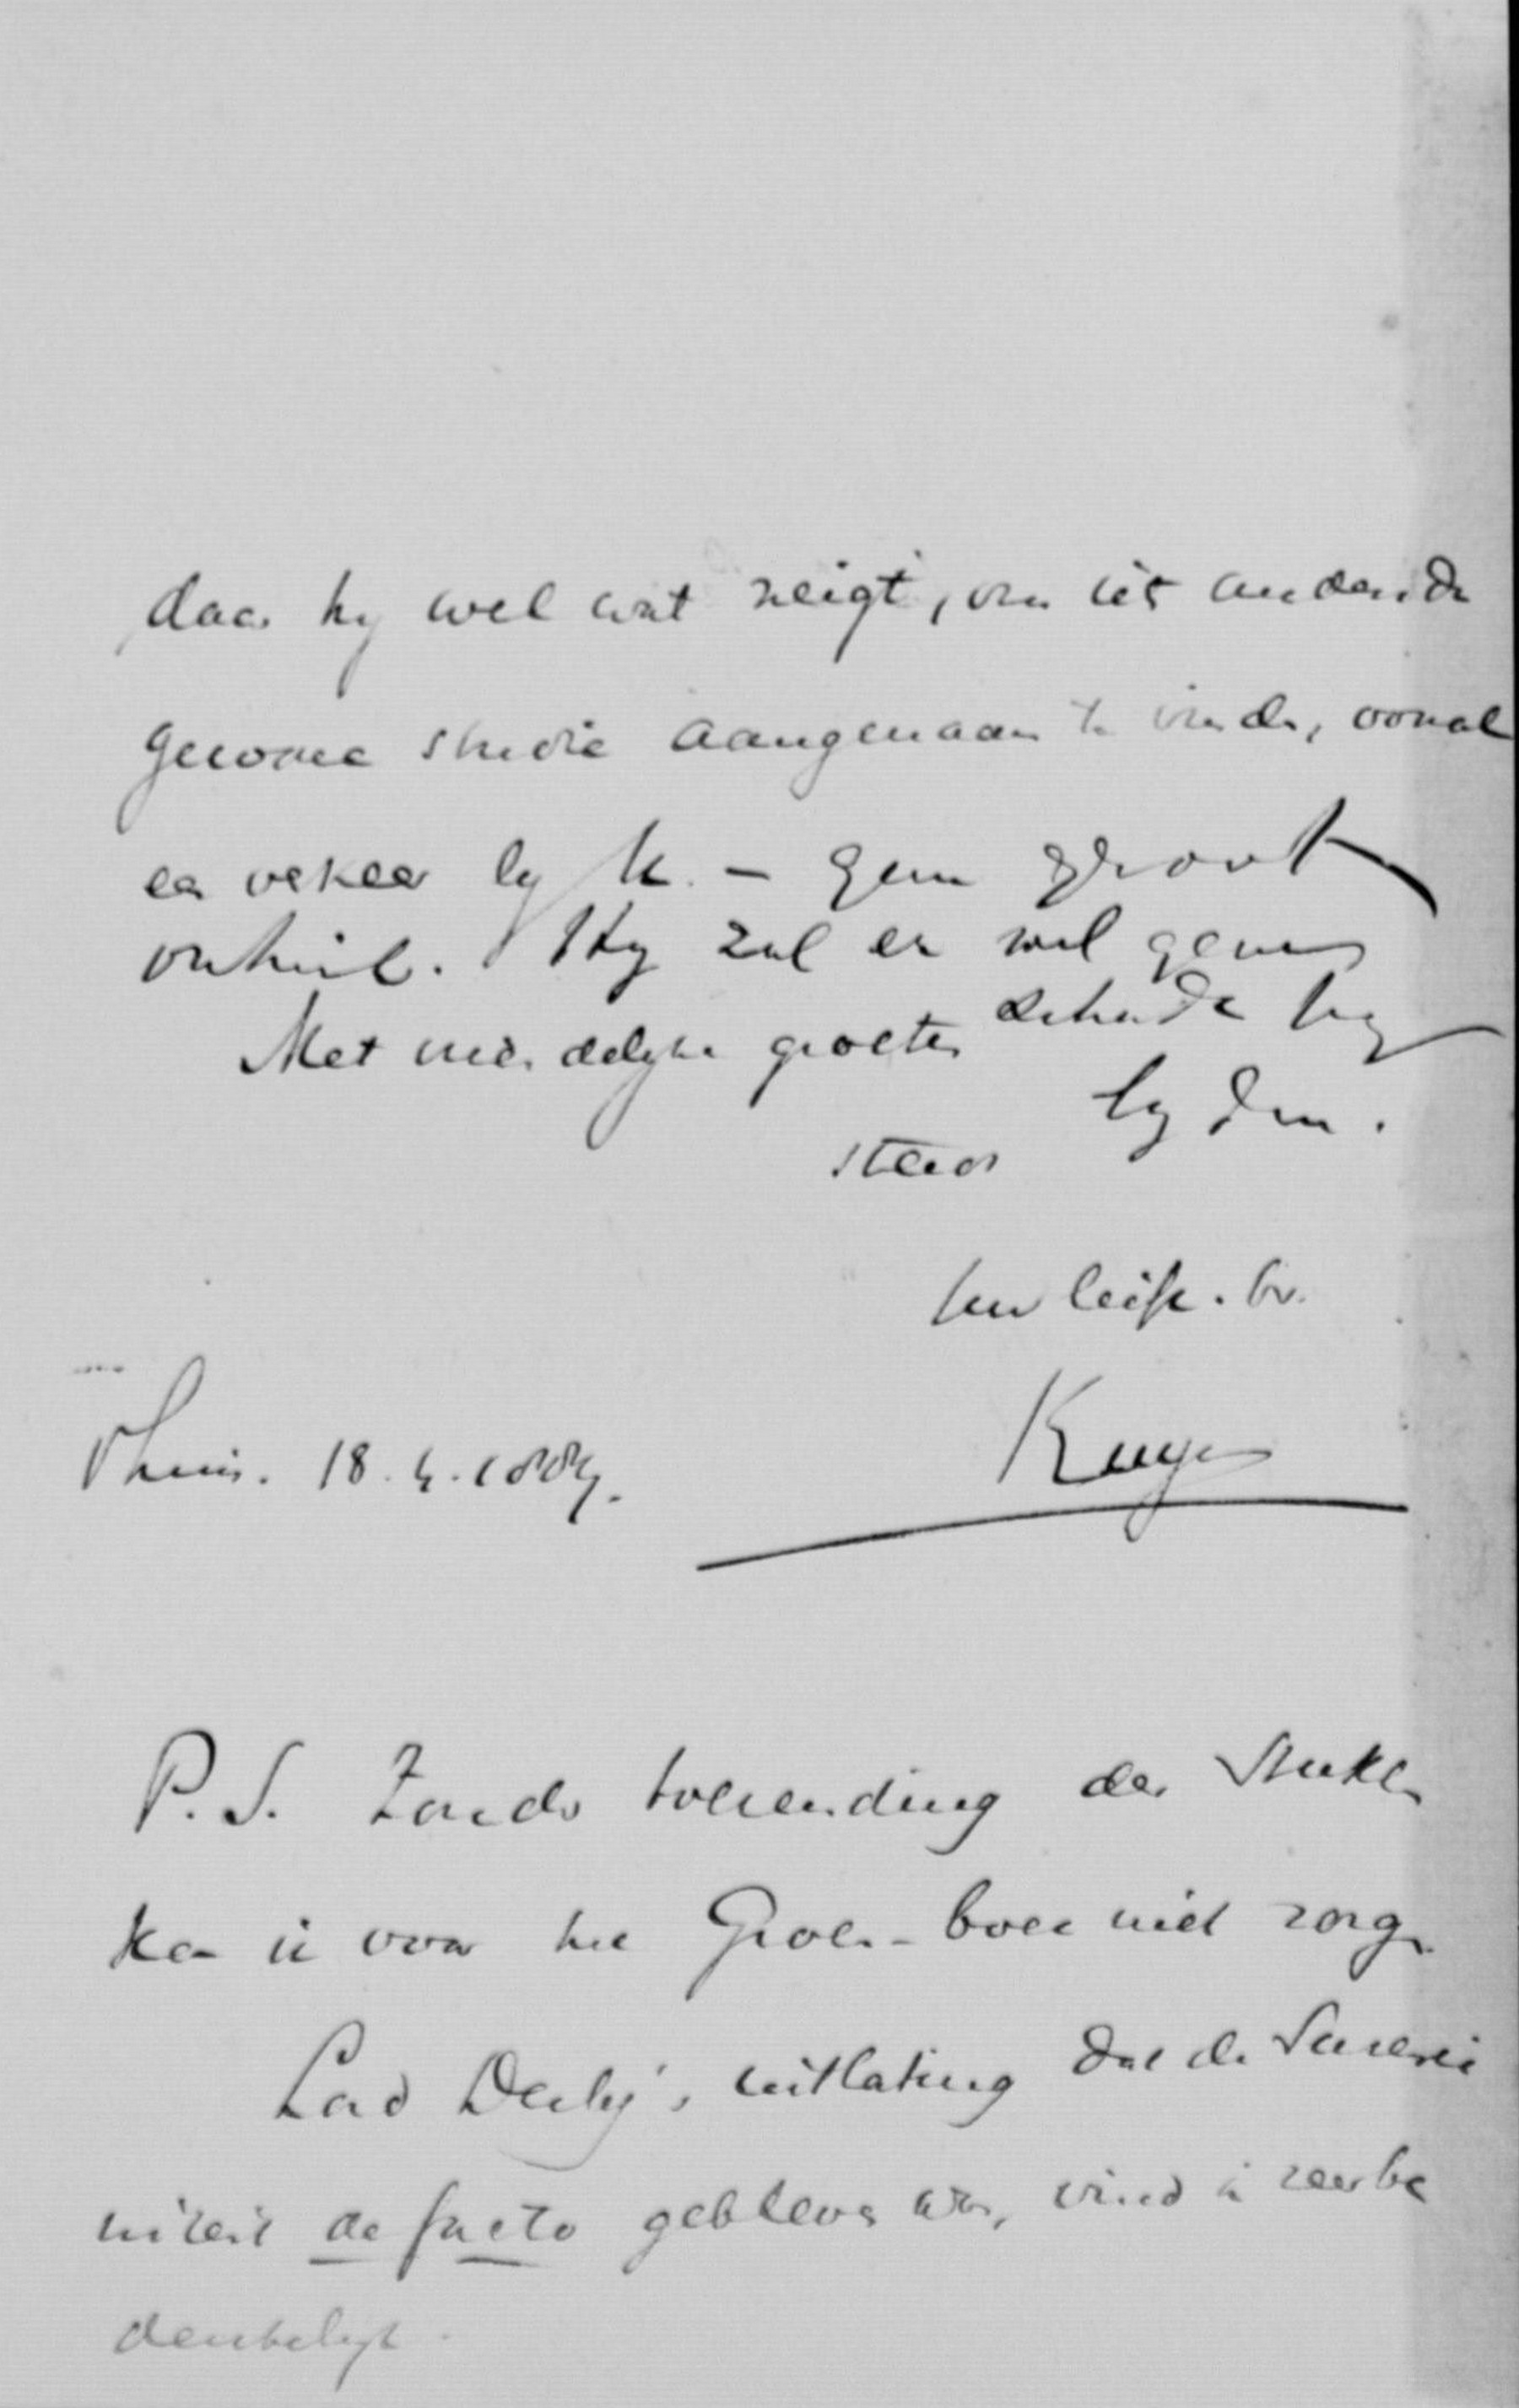 daar hy wel wat neigt, om iets anders dan
gewone studie aangenaam te vinden, vooral
een verkeer by K. – geen groot
onheil. Hy zal er wel geen
schade by
Met vriendelyke groeten
lyden.
steeds
Uw
Kuyper
Thuis. 18.4.1884.
P.S. Zonder toezending der Stukken
kan ik voor het Groen-boek niet zorgen
Lord Derby's uitlating dat de Suzerei
niteit de facto gebleven was, vind ik zeer be
denkelyk.